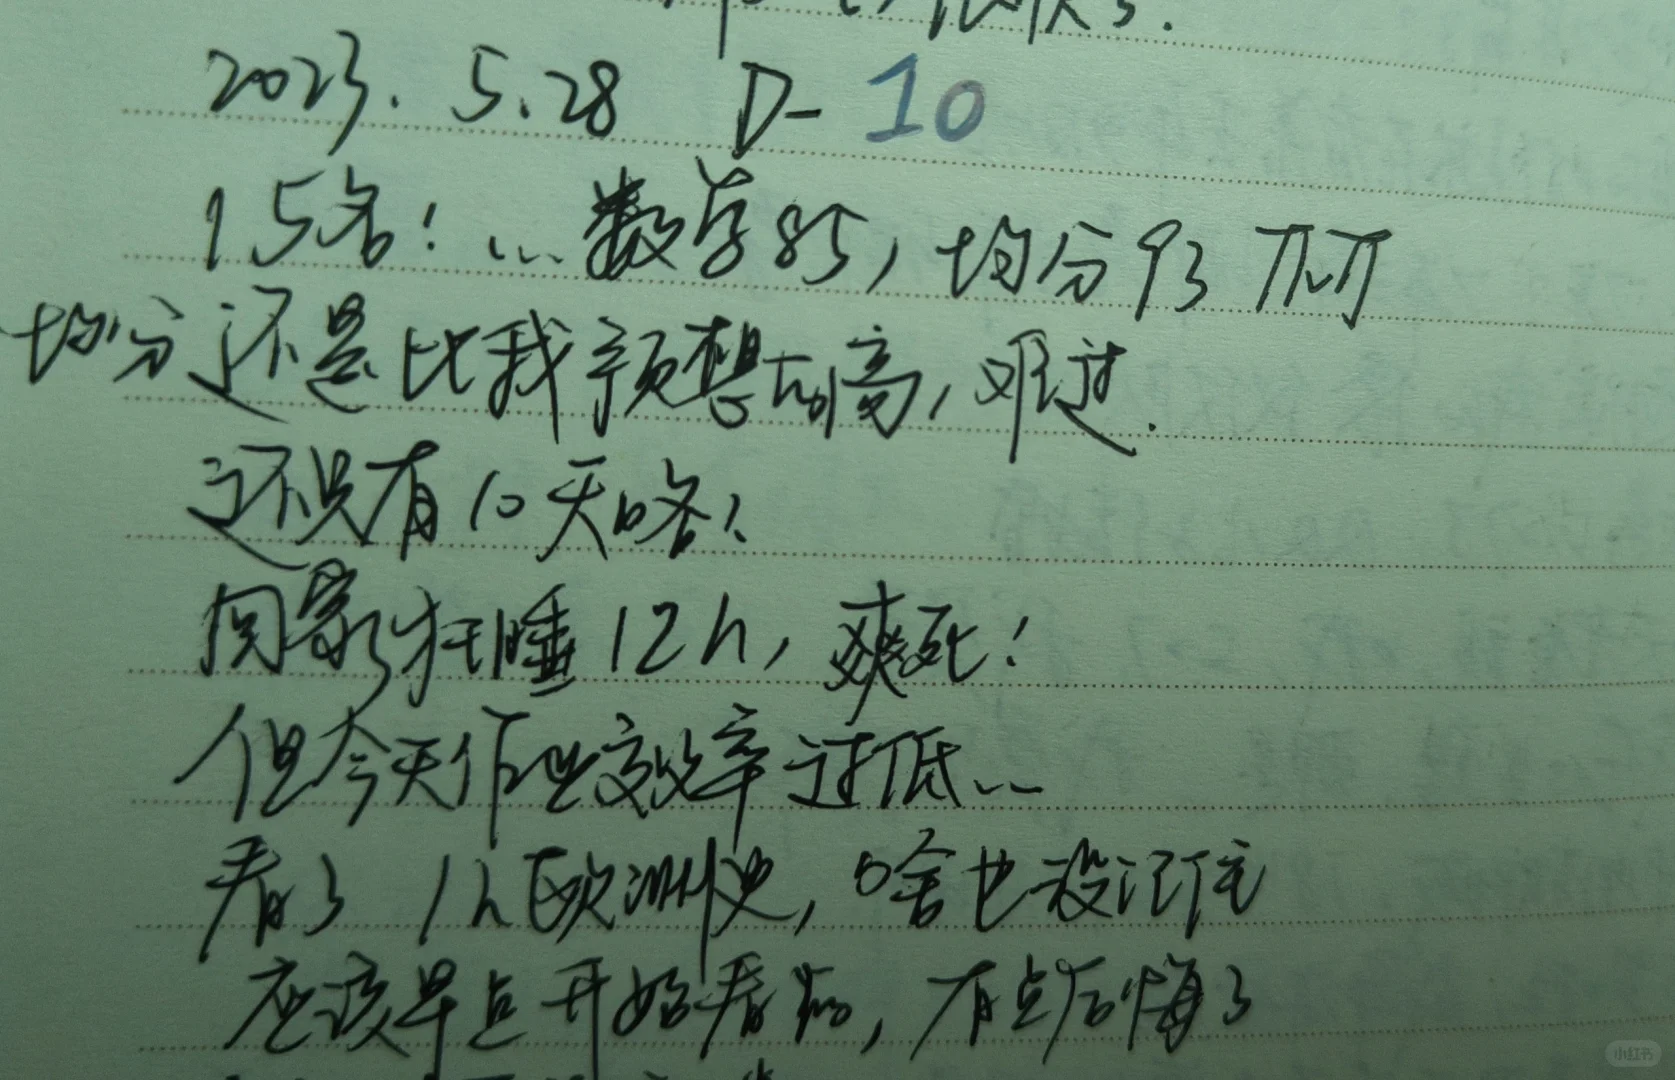 2023. 5.28 D-10
15名！... 数学85，均分93 TTvTT
均分还是比我预想的高，难过.
还只有10天咯！
回家狂睡12h，爽死！
但今天作业效率过低...
看了1h欧洲史，啥也没记住
应该早点开始看的，有点后悔了
小红书